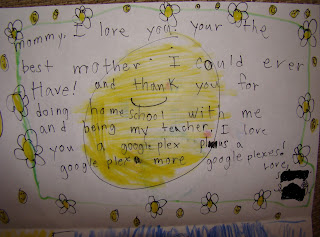 mommy, I love you. your the
best mother I could ever
Have! and thank you for
doing homeschool with me
and being my teacher. I love
you a googleplex plus a
googleplex more googleplexes!
Love,